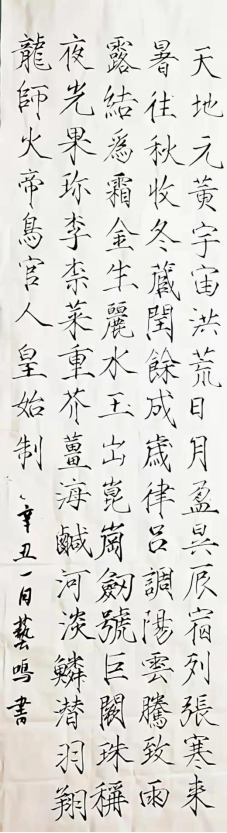 天地元黃宇宙洪荒日月盈昃辰宿列張寒来
暑往秋收冬蔵閏餘成歲律呂調陽雲騰致雨
露結為霜金生麗水玉出崑崗劍號巨闕珠稱
夜光果珎李柰菜重芥薑海鹹河淡鱗潜羽翔
龍師火帝鳥官人皇始制
辛丑一月藝鳴書